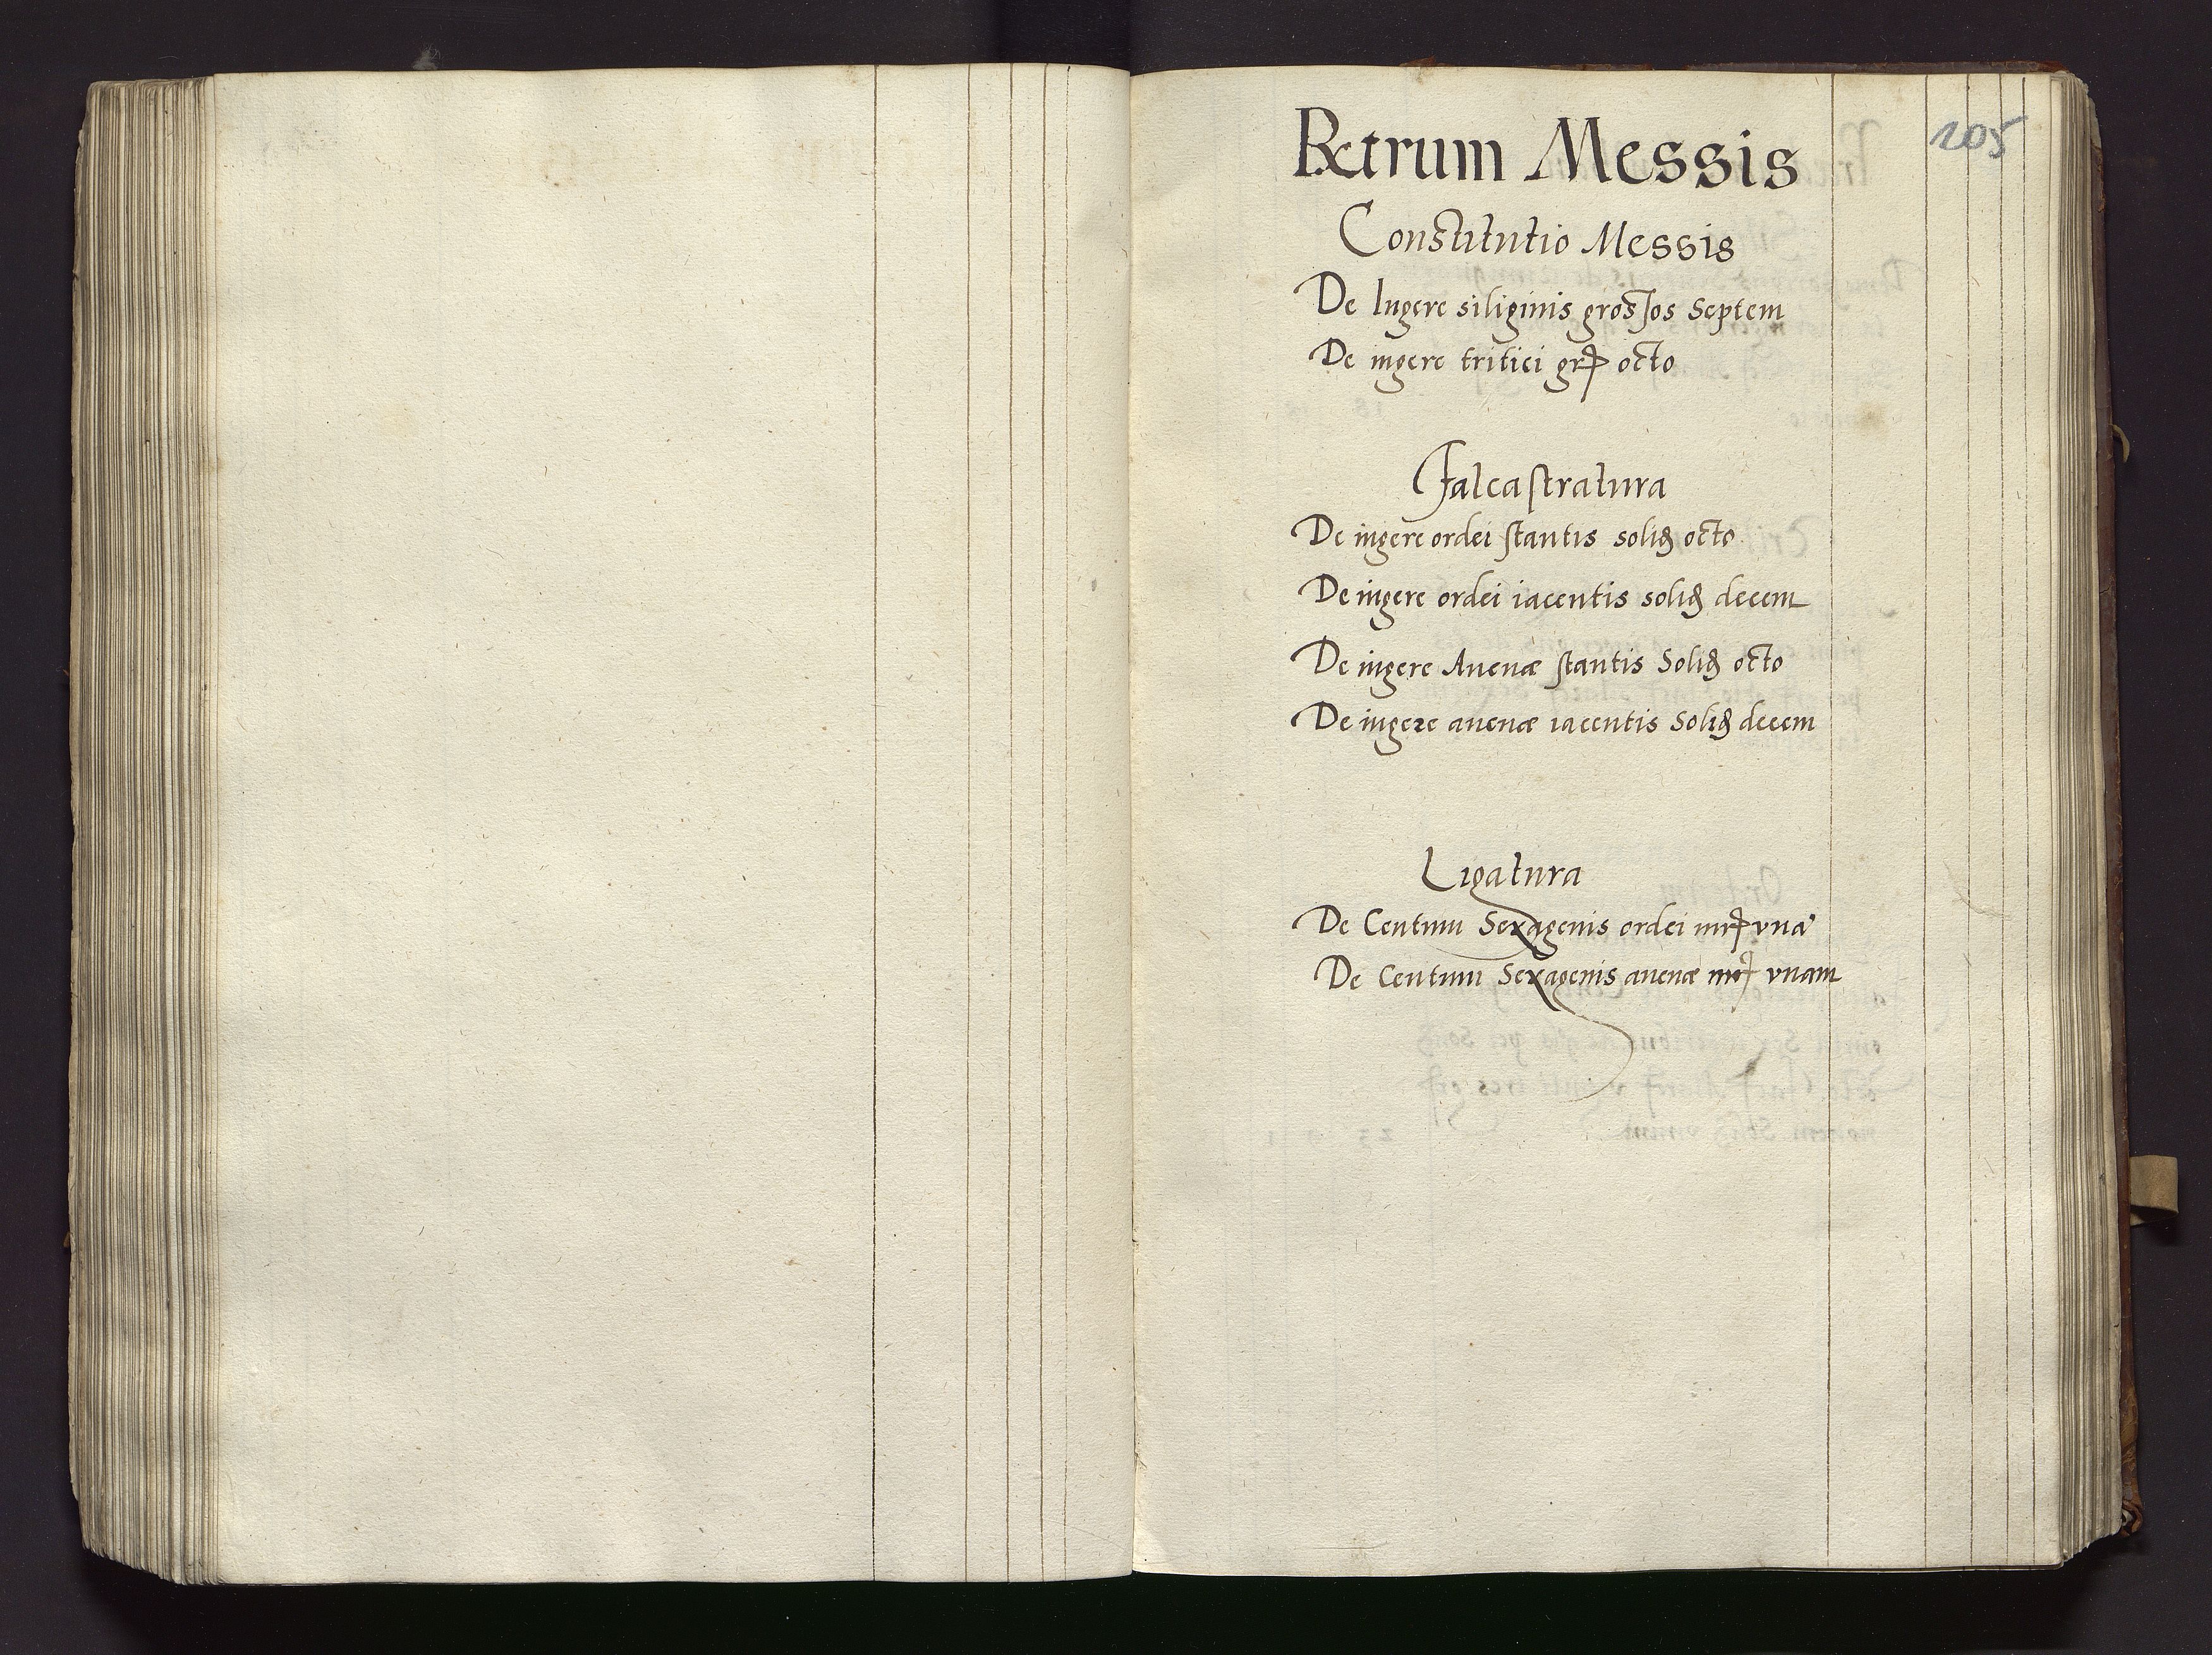 205
Rẽtrum Messis
Constitutio Messis
De Iugere siliginis grossos septem
De iugere tritici gr̃ octo
Falcastratura
De iugere ordei stantis solid octo
De iugere ordei iacentis solid decem
De iugere Auenæ stantis Solid octo
De iugere auenæ iacentis Solid decem
Ligatura
De Centum Sexagenis ordei mr̃ vnã
De Centum Sexagenis auenæ mr̃ vnam